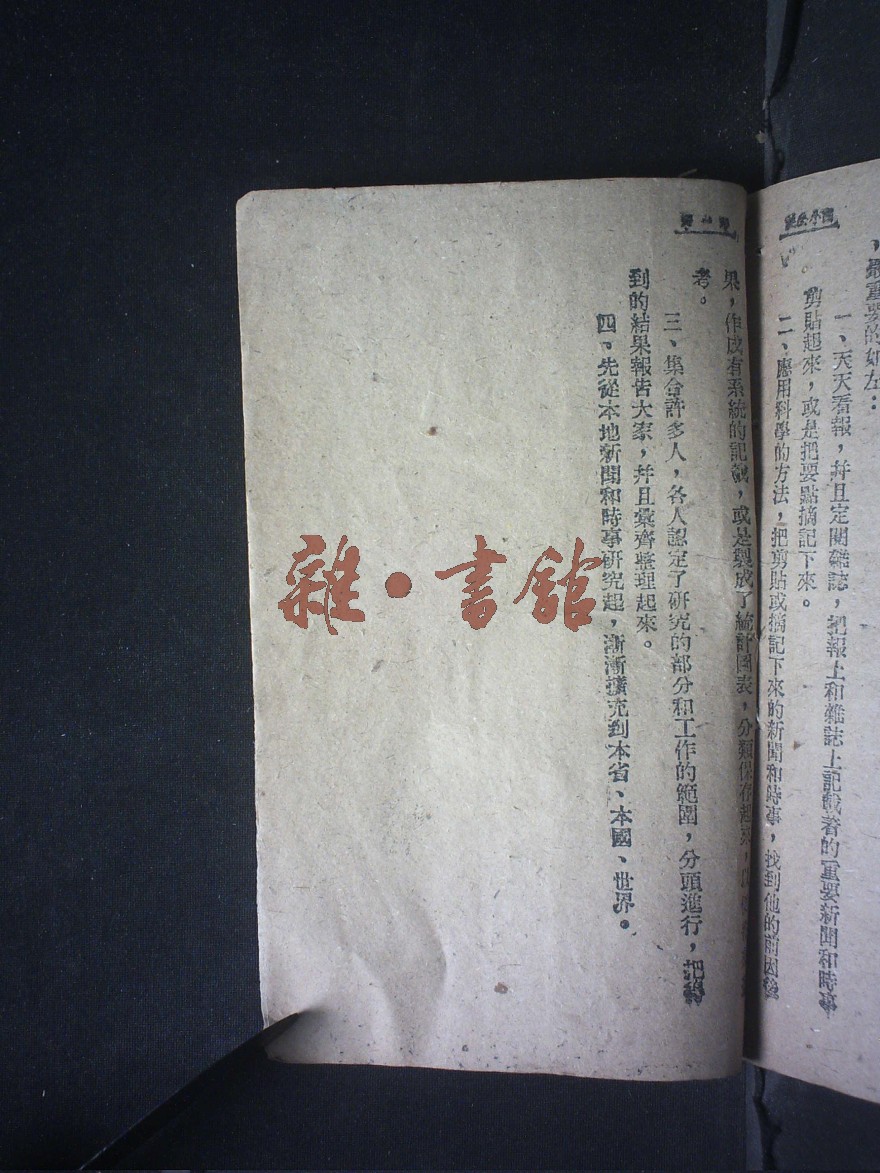 ，最重要的如左：
一、天天看報，幷且定閱雜誌，把報上和雜誌上記載着的重要新聞和時事
剪貼起來，或是把要點摘記下來。
二、應用科學的方法，把剪貼或摘記下來的新聞和時事，找到他的前因後
果，作成有系統的記載，或是製成了統計圖表，分類保存起來，
考。
三、集合許多人，各人認定了研究的部分和工作的範圍，分頭進行，把
到的結果報告大家，幷且彙齊整理起來。
四、先從本地新聞和時事研究起，漸漸擴充到本省、本國、世界。
雜·書館